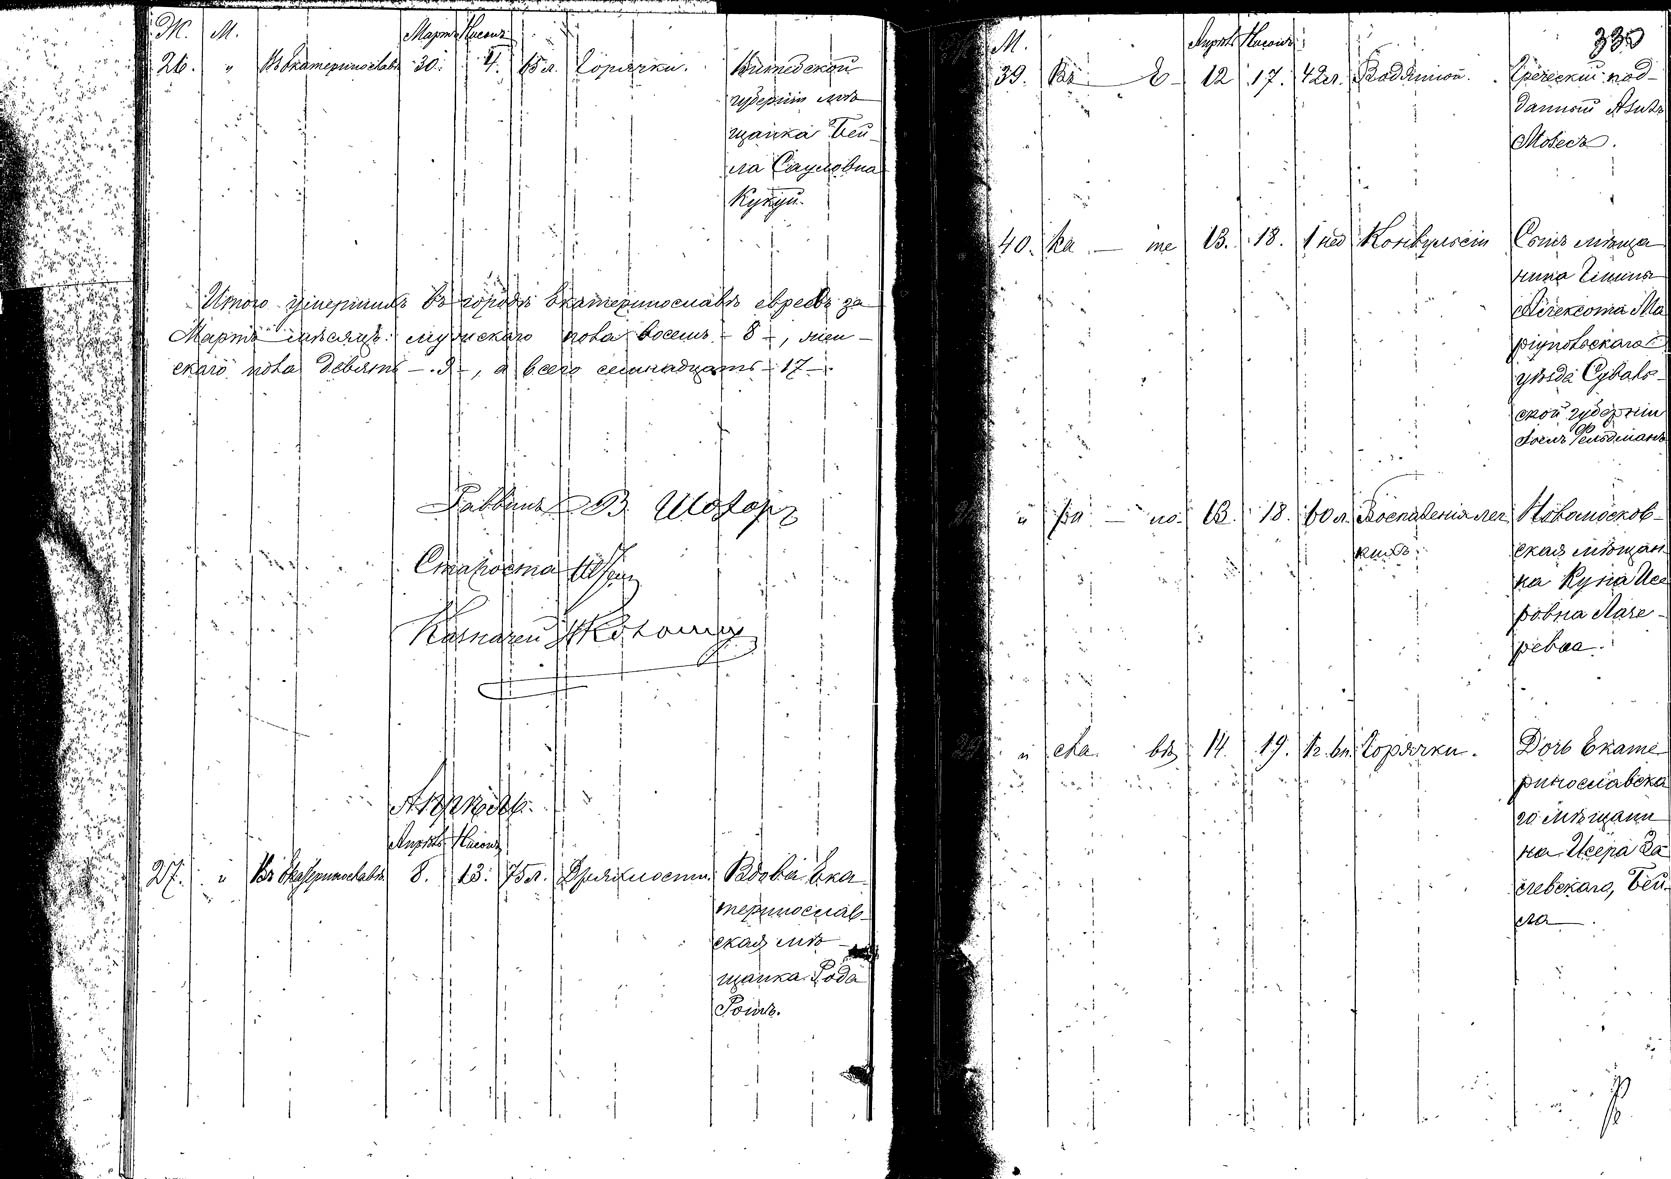 Ж. М. Мартъ Нисонъ
26. " Въ Екатеринославѣ 30. 4. 65 л. Горячки. Витебской
губерніи мѣ
щанка Бей-
ла Сауловна
Кукуй.
Итого умершихъ въ городѣ Екатеринославѣ евреевъ за
Мартъ мѣсяцъ: мужскаго пола восемь - 8 -, жен-
скаго пола девять - 9 -, а всего семнадцать - 17 -.
Раввинъ В. Шохоръ
Староста
Казначей
Апрѣль.
Апрѣль Нисонъ
27. " Въ Екатеринославѣ 8. 13. 75 л. Дряхлости. Вдова Ека
теринослав-
ская мѣ-
щанка Рода
Ротъ.
330
М. Апрѣль Нисонъ
39. Въ — Е- 12 17. 42 л. Водяной. Греческій под-
данный Азикъ
Мовесъ.
40. ка — те 13. 18. 1 нед Конвульсіи Сынъ мѣща
нина Гмины
Алексота Ма
ріупольскаго
уѣзда Сувалк-
ской губерніи
Іоель Фельдманъ
28 " ри — но- 13. 18. 60 л. Воспаленія лег
кихъ.
Новомосков-
ская мѣщан
ка Куна Исе
ровна Лаге-
рева.
29 " сла вѣ 14. 19. Горячки. Дочь Екате
ринославска
го мѣщани
на Исера За
славскаго, Бей-
ла